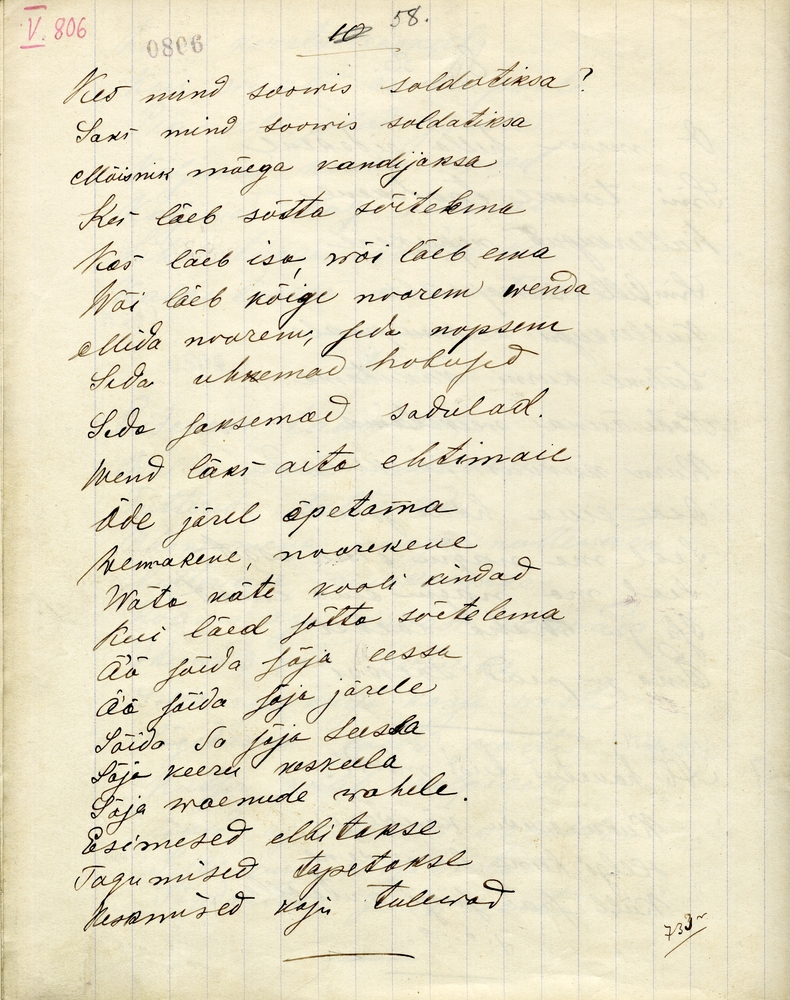 V. 806
0806
10 58.
Kes mind soowis soldatiksa?
Saks mind soowis soldatiksa
Mõisnik mõega kandijaksa
Kes läeb sõtta sõitelema
Kas läeb isa, wõi läeb ema
Wõi läeb kõige noorem wenda
Mida noorem, seda nopsem
Seda uhkemad hobused
Seda saksemad sadulad.
Wend läks aita ehtimaie
Õde järel õpetama
Wennakene, noorekene
Wata käte kooli kindad
Kui läed sõtta sõitelema
Ää sõida sõja eessa
Ää sõida sõja järele
Sõida Sa sõja seessa
Sõja keeru keskeela
Sõja waenude wahele.
Esimesed ellitakse
Tagumised tapetakse
Keskmised koju tulewad